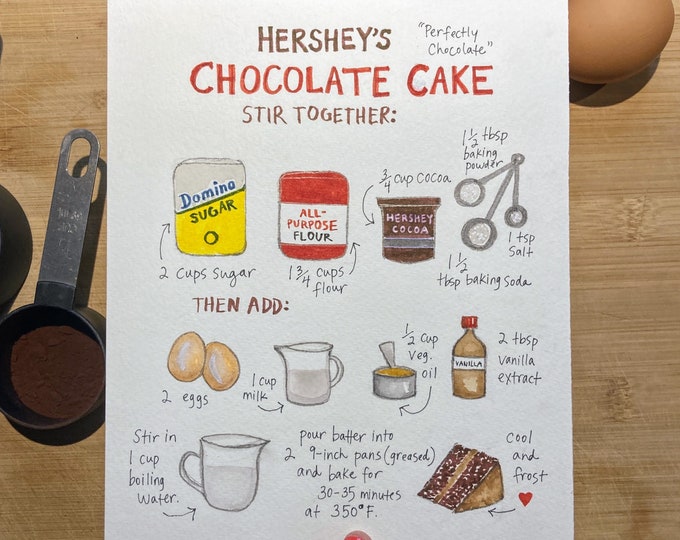 HERSHEY'S
"Perfectly
Chocolate"
CHOCOLATE CAKE
STIR TOGETHER:
Domino
SUGAR
2 cups sugar
ALL-
PURPOSE
FLOUR
1 3/4 cups
flour
3/4 cup cocoa
HERSHEY
COCOA
1 1/2 tbsp
baking
powder
1 tsp
salt
1 1/2
tbsp baking soda
THEN ADD:
2 eggs
1 cup
milk
1/2 cup
veg.
oil
VANILLA
2 tbsp
vanilla
extract
Stir in
1 cup
boiling
water.
pour batter into
2 9-inch pans (greased)
and bake for
30-35 minutes
at 350°F.
cool
and
frost